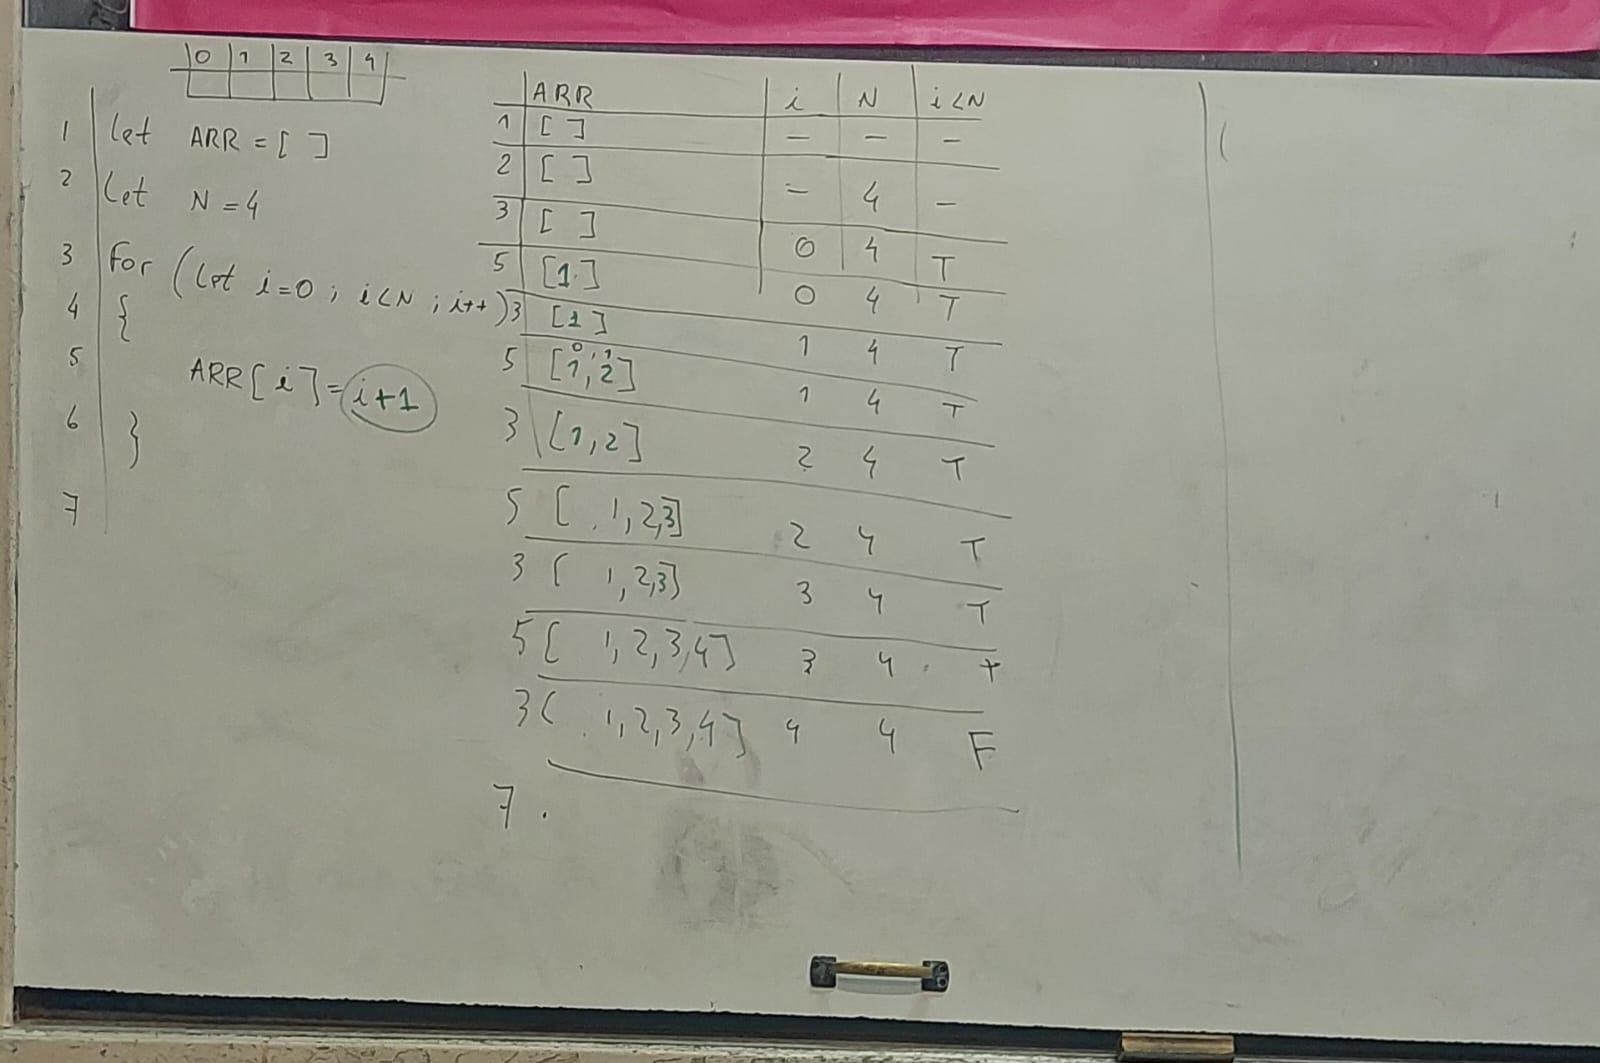 0 1 2 3 4
1 let ARR = [ ]
2 Let N = 4
3 For (let i=0 ; i<N ; i++)
4 {
5 ARR[i] = i+1
6 }
7
ARR i N i<N
1 [ ] – – –
2 [ ] – 4 –
3 [ ] 0 4 T
5 [1] 0 4 T
3 [1] 1 4 T
0 , 1
5 [1,2] 1 4 T
3 [1,2] 2 4 T
5 [ 1,2,3] 2 4 T
3 [ 1,2,3] 3 4 T
5 [ 1,2,3,4] 3 4 T
3 [ 1,2,3,4] 4 4 F
7 .